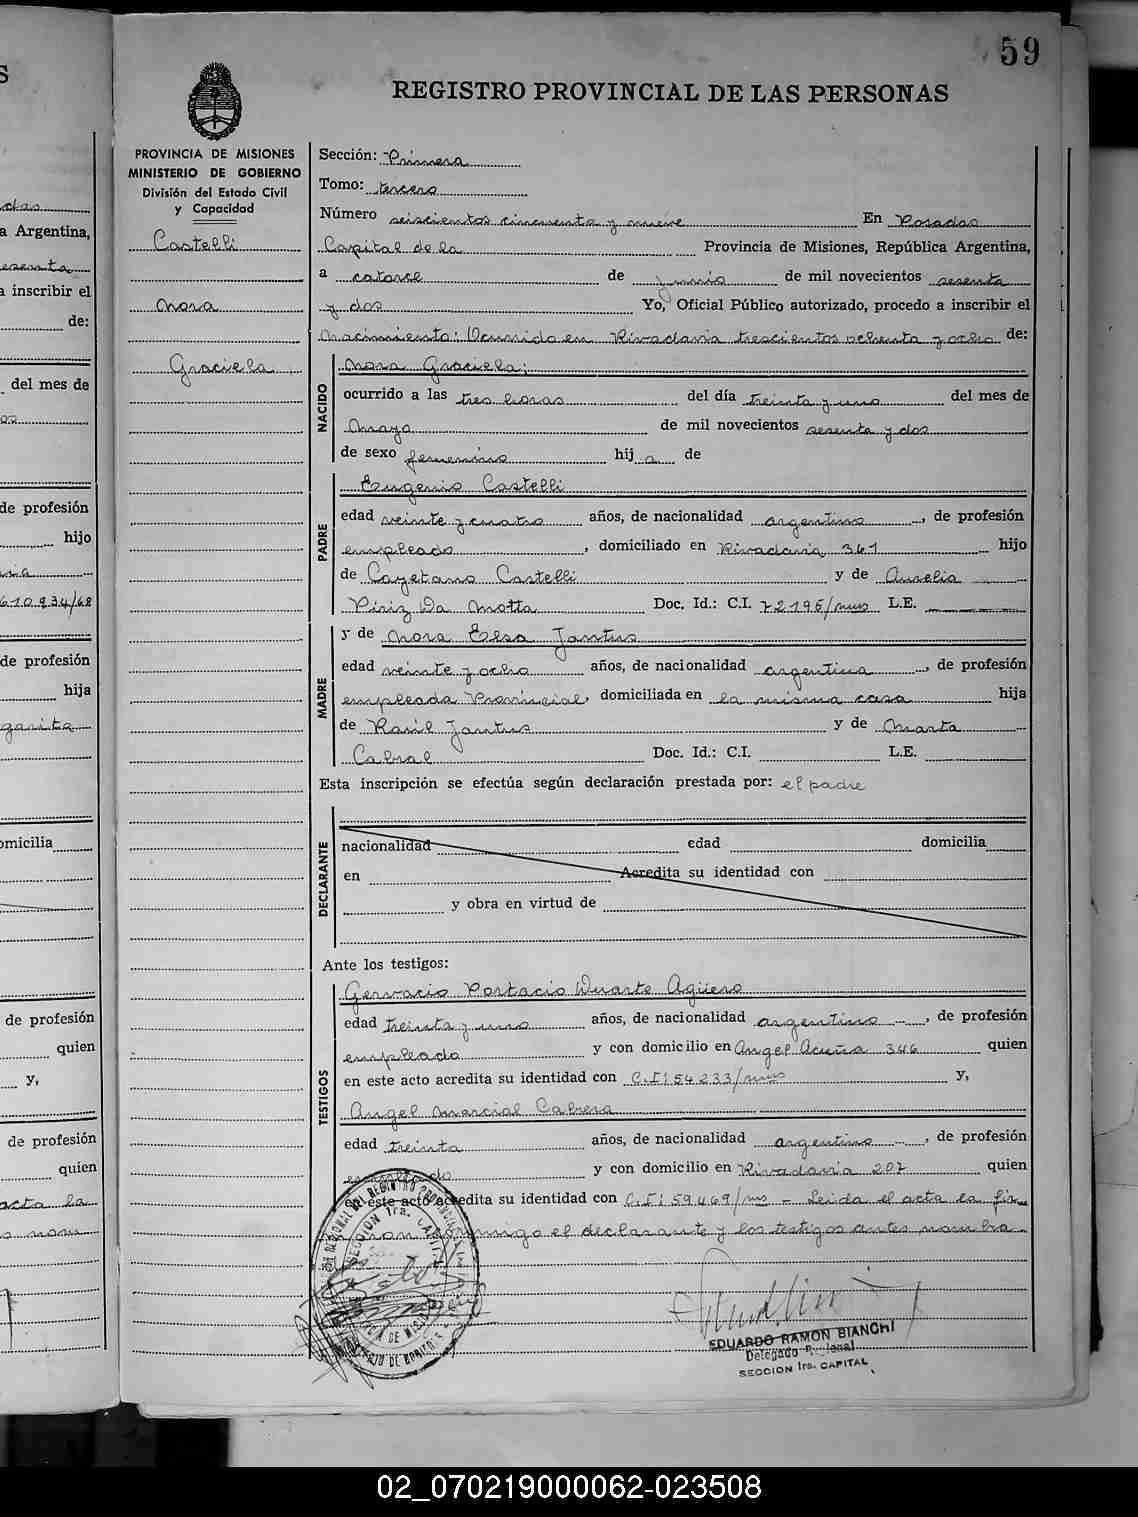 59
REGISTRO PROVINCIAL DE LAS PERSONAS
PROVINCIA DE MISIONES
MINISTERIO DE GOBIERNO
División del Estado Civil
y Capacidad
Castelli
Nora
Graciela
Sección: Primera
Tomo: tercero
Número seiscientos cincuenta y nueve En Posadas
Capital de la Provincia de Misiones, República Argentina,
a catorce de junio de mil novecientos sesenta
y dos Yo, Oficial Público autorizado, procedo a inscribir el
Nacimiento: Ocurrido en Rivadavia trescientos ochenta y ocho de:
NACIDO
Nora Graciela:
ocurrido a las tres horas del día treinta y uno del mes de
Mayo de mil novecientos sesenta y dos
de sexo femenino hij a de
PADRE
Eugenio Castelli
edad veinte y cuatro años, de nacionalidad argentino, de profesión
empleado, domiciliado en Rivadavia 361 hijo
de Cayetano Castelli y de Aurelia
Piriz Da Motta Doc. Id.: C.I. 72195/mnes L.E.
MADRE
y de Nora Elsa Jantus
edad veinte y ocho años, de nacionalidad argentina, de profesión
empleada Provincial, domiciliada en la misma casa hija
de Raúl Jantus y de Marta
Cabral Doc. Id.: C.I. L.E.
Esta inscripción se efectúa según declaración prestada por: el padre
DECLARANTE
nacionalidad edad domicilia
en Acredita su identidad con
y obra en virtud de
Ante los testigos:
TESTIGOS
Gervacio Portacio Duarte Agüero
edad treinta y uno años, de nacionalidad argentino, de profesión
empleado y con domicilio en Angel Acuña 346 quien
en este acto acredita su identidad con C.I: 54233/mnes y,
Angel Marcial Cabrera
edad treinta años, de nacionalidad argentino, de profesión
empleado y con domicilio en Rivadavia 207 quien
en este acto acredita su identidad con C.I: 59469/mns - Leida el acta la fir
man conmigo el declarante y los testigos antes nombra
EDUARDO RAMON BIANCHI
Delegado Regional
SECCION 1ra. CAPITAL
02_070219000062-023508